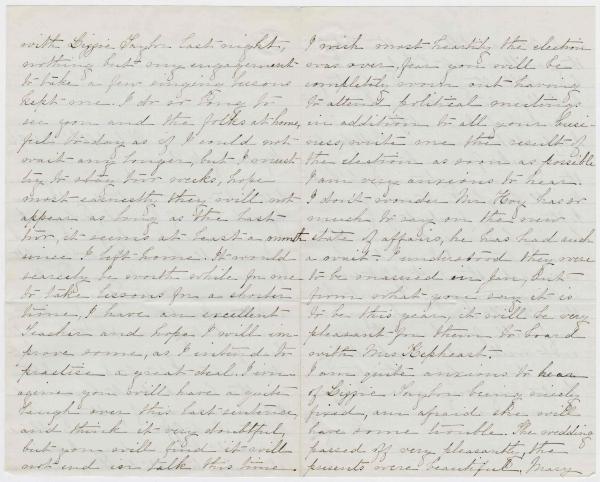 with Lizzie Taylor last night,
nothing but my engagement
to take a few singing lessons
kept me. I do so long to
see you and the folks at home,
felt to day as if I could not
wait any longer, but I must
try to stay two weeks, hope
most earnestly they will not
appear as long as the last
two, it seems at least a month
since I left home. It would
scarcely be worth while for me
to take lessons for a shorter
time, I have an excellent
teacher and hope I will im-
prove some, as I intend to
practise a great deal. I im-
agine you will have a quite
laugh over this last sentence
and think it very doubtful,
but you will find it will
not end in talk this time.
I wish most heartily the election
was over, fear you will be
completely worn out having
to attend political meetings
in addition to all your busi-
ness, write me the result of
the election as soon as possible
I am very anxious to hear.
I don't wonder Mr Hoy has so
much to say on the new
state of affairs, he has had such
a wait I understood they were
to be married in Jan, but
from what you say it is
to be this year, it will be very
pleasant for them to board
with Mrs Kepheart.
I am quite anxious to hear
of Lizzie Taylor being nicely
fixed, am afraid she will
have some trouble. The wedding
passed off very pleasantly, the
presents were beautiful, Mary